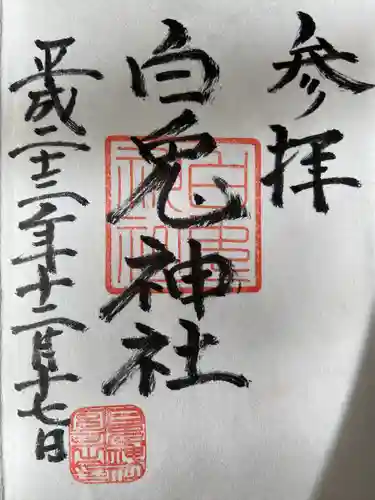 参拝
白兎神社
平成二十三年十二月十七日